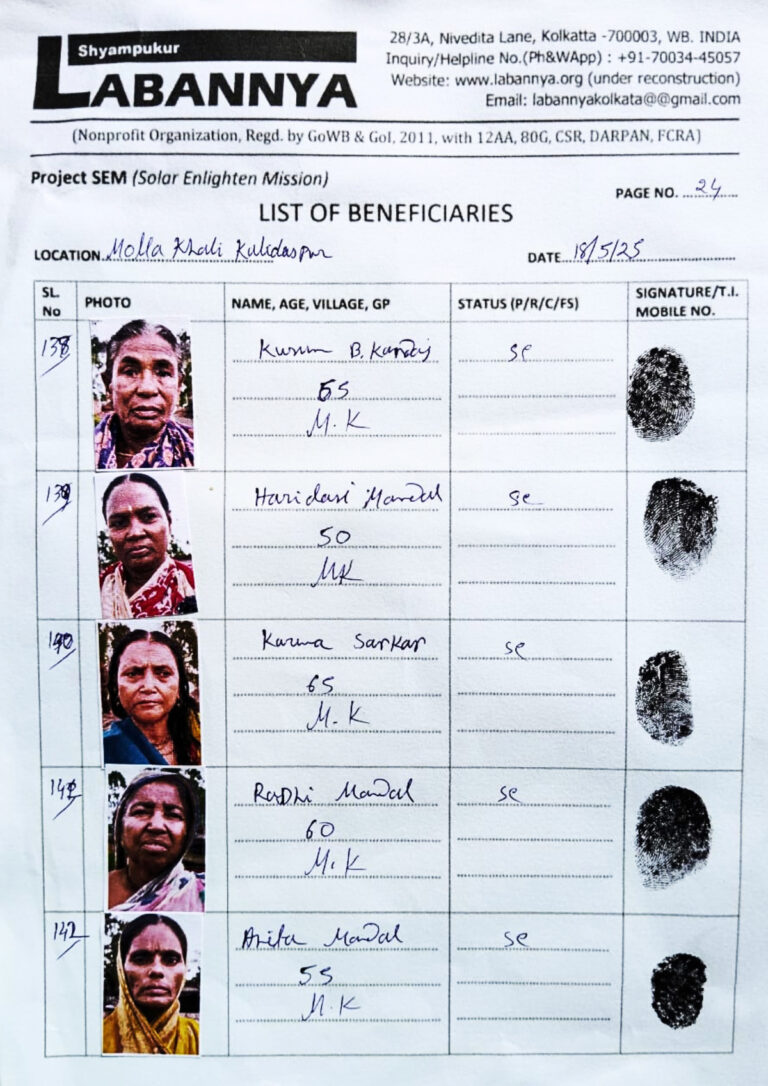 Shyampukur
LABANNYA
28/3A, Nivedita Lane, Kolkatta -700003, WB. INDIA
Inquiry/Helpline No.(Ph&WApp) : +91-70034-45057
Website: www.labannya.org (under reconstruction)
Email: labannyakolkata@@gmail.com
(Nonprofit Organization, Regd. by GoWB & GoI, 2011, with 12AA, 80G, CSR, DARPAN, FCRA)
Project SEM (Solar Enlighten Mission)
PAGE NO. 24
LIST OF BENEFICIARIES
LOCATION Molla Khali Kalidaspur
DATE 18/5/25
SL. No PHOTO NAME, AGE, VILLAGE, GP STATUS (P/R/C/FS) SIGNATURE/T.I. MOBILE NO.
138 Kusum B. se
65
M.K
139 Haridasi Mandal se
50
MK
140 Karuna Sarkar se
65
M.K
141 Radhi Mandal se
60
M.K
142 Anita Mandal se
55
M.K